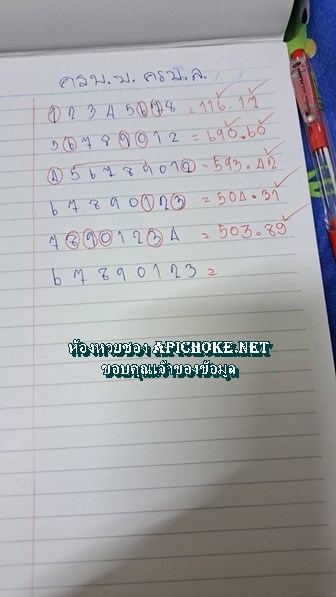 คลบ.บ. ครบ.ล.
1 2 3 4 5 6 7 8 = 116.17
5 6 7 8 9 0 1 2 = 690.60
4 5 6 7 8 9 0 1 2 = 593.42
6 7 8 9 0 1 2 3 = 504.31
7 8 9 0 1 2 3 4 = 503.89
6 7 8 9 0 1 2 3 =
ห้องหวยซอง APICHOKE.NET
ขอบคุณเจ้าของข้อมูล